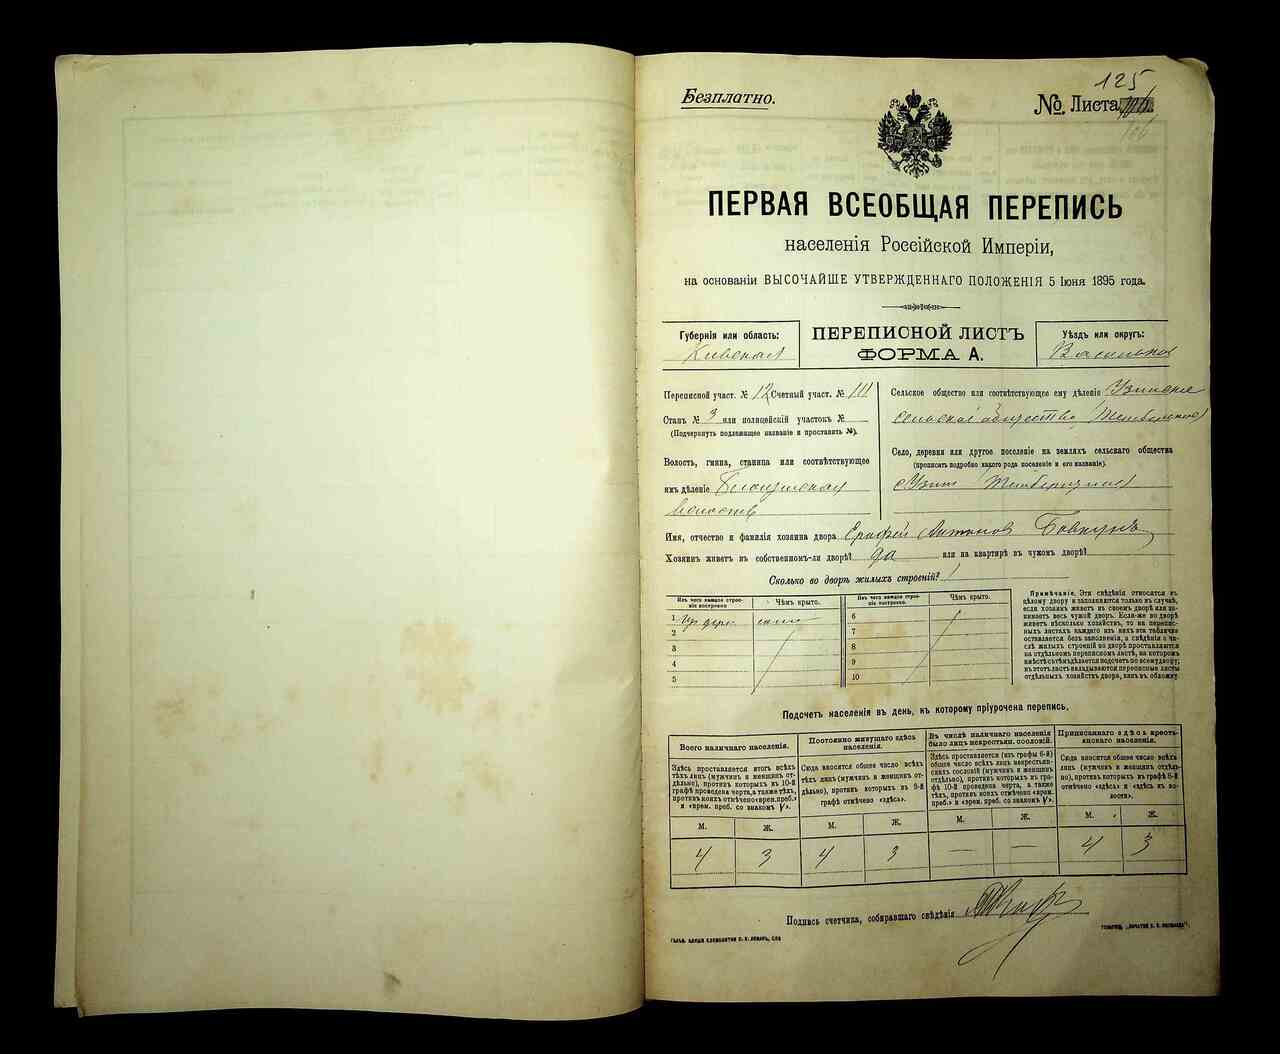 125
Безплатно.
№ Листа 106
106
ПЕРВАЯ ВСЕОБЩАЯ ПЕРЕПИСЬ
населенія Россійской Имперіи,
на основаніи ВЫСОЧАЙШЕ УТВЕРЖДЕННАГО ПОЛОЖЕНІЯ 5 Іюня 1895 года.
Губернія или область:
Киевская
ПЕРЕПИСНОЙ ЛИСТЪ
ФОРМА А.
Уѣздъ или округъ:
Переписной участ. № 12 Счетный участ. № III
Станъ № 3 или полицейскій участокъ №
(Подчеркнуть подлежащее названіе и проставить №).
Волость, гмина, станица или соотвѣтствующее
имъ дѣленіе
волость
Сельское общество или соотвѣтствующее ему дѣленіе Узинское
сельское общество
Село, деревня или другое поселеніе на земляхъ сельскаго общества
(прописать подробно какого рода поселеніе и его названіе).
с. Узин
Имя, отчество и фамилія хозяина двора Ерофей Антонов Бовкунъ
Хозяинъ живетъ въ собственномъ-ли дворѣ? да или на квартирѣ въ чужомъ дворѣ?
Сколько во дворѣ жилыхъ строеній? 1
Изъ чего каждое строеніе построено.
Чѣмъ крыто.
Изъ чего каждое строеніе построено.
Чѣмъ крыто.
1
2
3
4
5
6
7
8
9
10
Примѣчаніе. Эти свѣдѣнія относятся къ
цѣлому двору и заполняются только въ случаѣ,
если хозяинъ живетъ въ своемъ дворѣ или занимаетъ
весь чужой дворъ. Если-же во дворѣ
живетъ нѣсколько хозяйствъ, то на переписныхъ
листахъ каждаго изъ нихъ эта табличка
оставляется безъ заполненія, а свѣдѣнія о числѣ
жилыхъ строеній во дворѣ проставляются
на отдѣльномъ переписномъ листѣ, на которомъ
вмѣстѣ съ тѣмъ дѣлается подсчетъ по всему двору;
въ этотъ листъ вкладываются переписные листы
отдѣльныхъ хозяйствъ двора, какъ въ обложку.
Подсчетъ населенія въ день, къ которому пріурочена перепись.
Всего наличнаго населенія.
Здѣсь проставляется итогъ всѣхъ
тѣхъ лицъ (мужчинъ и женщинъ отдѣльно),
противъ которыхъ въ 10-й
графѣ проведена черта, а также тѣхъ,
противъ коихъ отмѣчено «врем. преб.»
и «врем. преб. со знакомъ V».
Постоянно живущаго здѣсь
населенія.
Сюда вносится общее число всѣхъ
тѣхъ лицъ (мужчинъ и женщинъ отдѣльно),
противъ которыхъ въ 9-й
графѣ отмѣчено «здѣсь».
Въ числѣ наличнаго населенія
было лицъ некрестьян. сословій.
Здѣсь проставляется (изъ графы 6-й)
общее число всѣхъ лицъ некрестьянскихъ
сословій (мужчинъ и женщинъ
отдѣльно), противъ которыхъ въ графѣ
10-й проведена черта, а также
тѣхъ, противъ коихъ отмѣчено «врем.
преб.» и «врем. преб. со знакомъ V».
Приписаннаго здѣсь крестьянскаго
населенія.
Сюда вносится общее число всѣхъ
лицъ (мужчинъ и женщинъ отдѣльно),
противъ которыхъ въ графѣ 8-й
отмѣчено «здѣсь» и «здѣсь въ волости».
М. Ж. М. Ж. М. Ж. М. Ж.
4 3 4 3 — — 4 3
Подпись счетчика, собиравшаго свѣдѣнія